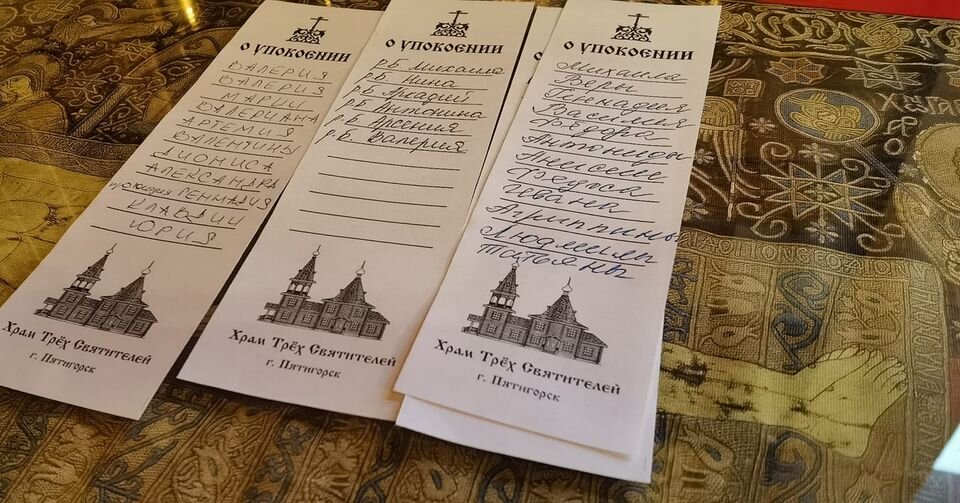 О УПОКОЕНИИ
ВАЛЕРИЯ
ВАЛЕРИЯ
МАРИИ
ВАЛЕРИАНА
АРТЕМИЯ
ВАЛЕНТИНЫ
ДИОНИСА
АЛЕКСАНДРА
ГЕННАДИЯ
КЛАВДИИ
ЮРИЯ
Храм Трёх Святителей
г. Пятигорск
О УПОКОЕНИИ
р.Б. Михаила
р.Б. Нина
р.Б. Аркадий
р.Б. Антонина
р.Б. Арсения
р.Б. Валерия
Храм Трёх Святителей
г. Пятигорск
О УПОКОЕНИИ
Михаила
Веры
Геннадия
Василия
Фёдора
Антониды
Федоса
Ивана
Агриппины
Людмилы
Татьяны
Храм Трёх Святителей
г. Пятигорск